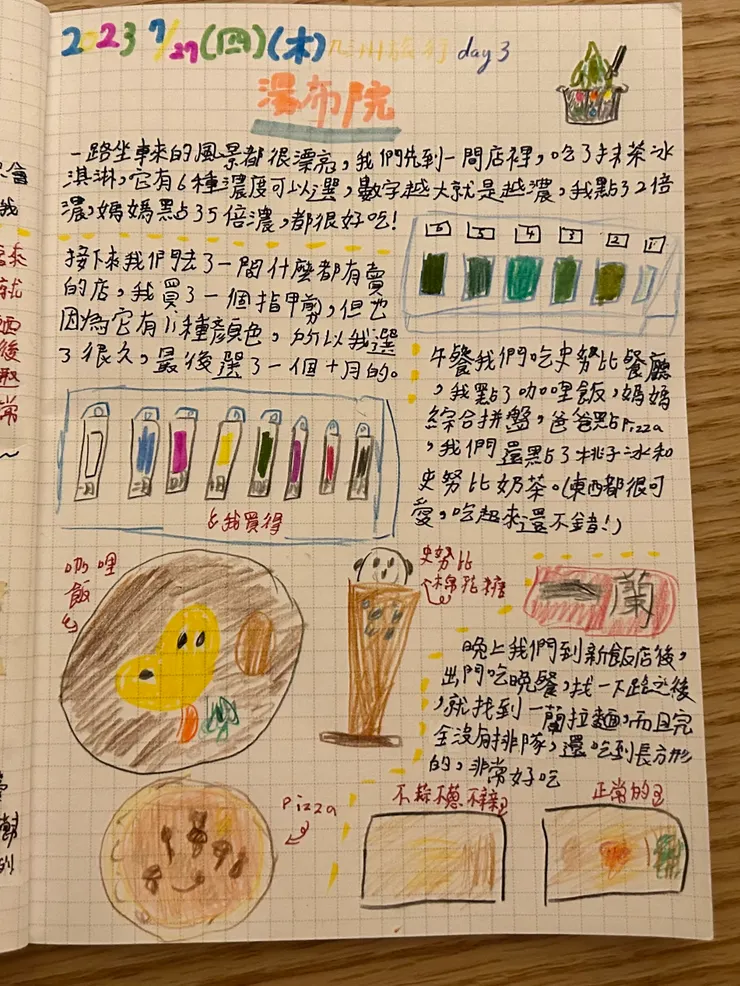 2023 7/27(四)(木)九州旅行 day 3
湯布院
一路坐車來的風景都很漂亮,我們先到一間店裡,吃了抹茶冰
淇淋,它有6種濃度可以選,數字越大就是越濃,我點了2倍
濃,媽媽點了5倍濃,都很好吃!
6 5 4 3 2 1
接下來我們去了一間什麼都有賣
的店,我買了一個指甲剪,但也
因為它有11種顏色,所以我選
了很久,最後選了一個十月的。
我買得
午餐我們吃史努比餐廳
,我點了咖哩飯,媽媽
綜合拼盤,爸爸點pizza
,我們還點了桃子冰和
史努比奶茶。(東西都很可
愛,吃起來還不錯!)
咖哩
飯
史努比
棉花糖
一蘭
晚上我們到新飯店後,
出門吃晚餐,找一下路之後
,就找到一蘭拉麵,而且完
全沒有排隊,還吃到長方形
的,非常好吃
pizza
不蒜不蔥不辣
正常的
會
我
來
就
麵
後
常
~
的